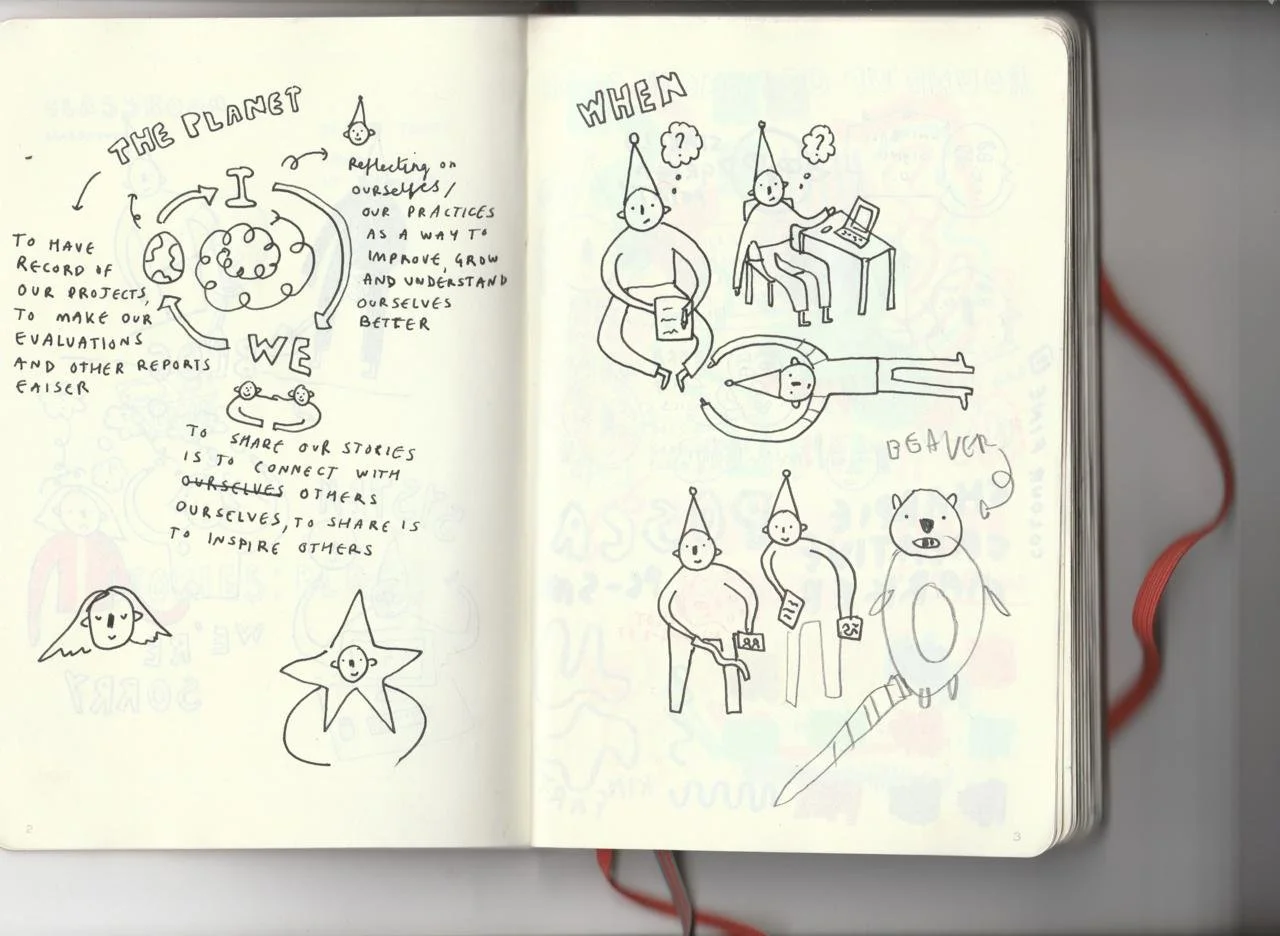 THE PLANET
I
WE
Reflecting on
OURSELVES/
OUR PRACTICES
AS A WAY TO
IMPROVE, GROW
AND UNDERSTAND
OURSELVES
BETTER
TO HAVE
RECORD OF
OUR PROJECTS,
TO MAKE OUR
EVALUATIONS
AND OTHER REPORTS
EAISER
TO SHARE OUR STORIES
IS TO CONNECT WITH
OURSELVES OTHERS
OURSELVES, TO SHARE IS
TO INSPIRE OTHERS
2
WHEN
?
?
BEAVER
3